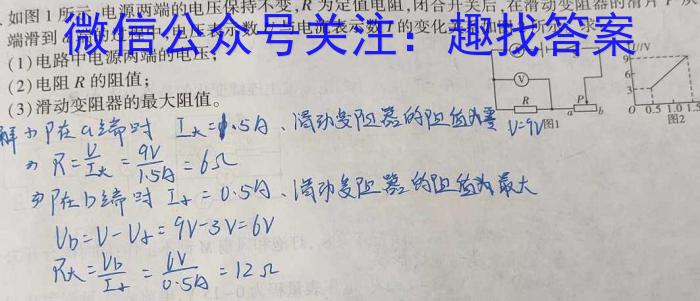 .如图1所示,电源两端的电压保持不变,R为定值电阻,闭合开关后,在滑动变阻器的滑片P从
端滑到
微信公众号关注：趣找答案
(1)电路中电源两端的电压;
(2)电阻R的阻值;
(3)滑动变阻器的最大阻值。
U/V
9
6
3
0 0.5 1.0 1.5
图2
V
R
P
a
b
图1
P在a端时 I大=1.5A、滑动变阻器的阻值为零 U=9V
R=U/I大=9V/1.5A=6Ω
P在b端时 I小=0.5A、滑动变阻器的阻值为最大
Ub=U-U小=9V-3V=6V
R大=Ub/I小=6V/0.5A=12Ω